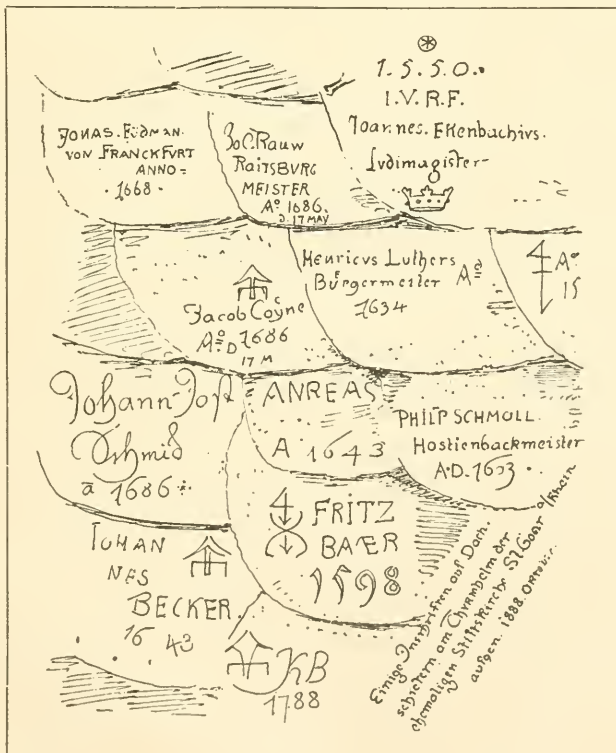 1.5.5.0.
I.V.R.F.
Joannes. Ekenbachivs.
Lvdimagister
JONAS.
VON FRANCKFVRT
ANNO=
1668.
JoC. Rauw
RAITSBVRG
MEISTER
Ao 1686.
D. 17 MAY
Henricvs Luthers
Bürgermeister Ao
1634
Ao
15
Jacob Coÿne
Ao D 1686
17 M
Johann Jost
Schmid
ā 1686
ANREAS
A 1643
PHILP SCHMOLL.
Hostienbackmeister
A.D. 1603.
FRITZ
BAER
1598
IOHAN
NES
BECKER.
16 43
KB
1788
Einige Inschriften auf Dach.
schiefern am Thurmhelm der
ehemaligen Stiftskirche St. Goar a/Rhein
aufgen. 1888.